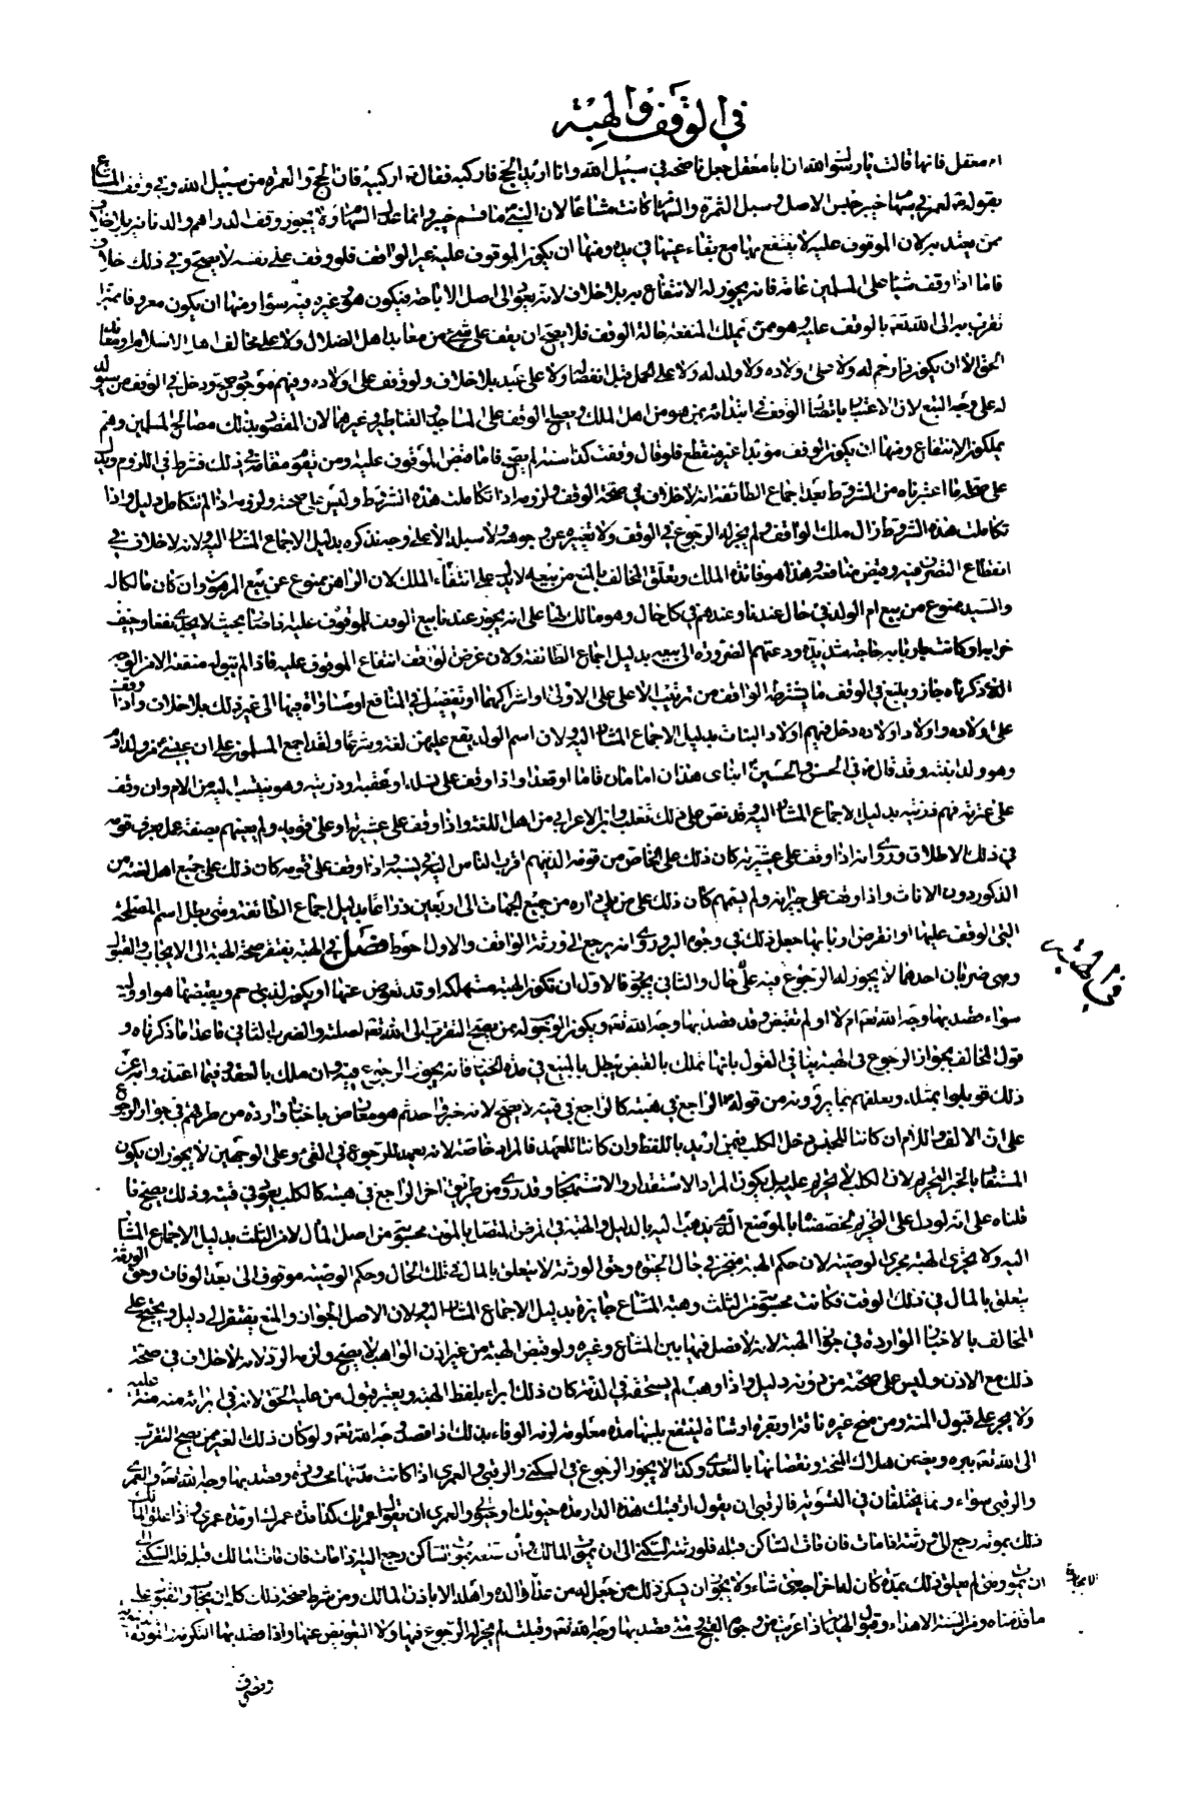 في الوقف والهبة
ام معقل فانها قالت يا رسول الله ان ابا معقل جعل ناضحه في سبيل الله وانا اريد الحج فاركبه فقال ص اركبيه فان الحج والعمرة من سبيل الله وفي وقف المشاع
بقوله ص لعمر في سهام خيبر حبس الاصل وسبل الثمرة والسهام كانت مشاعا لان النبي ص ما قسم خيبر وانما عدل السهام ولا يجوز وقف الدراهم والدنانير بلا خلاف
ممن يعتد به لان الموقوف عليه لا ينتفع بها مع بقاء عينها في يده ومنها ان يكون الموقوف عليه غير الواقف فلو وقف على نفسه لا يصح وفي ذلك خلاف
فاما اذا وقف شيئا على المسلمين عامة فانه يجوز له الانتفاع به بلا خلاف لانه يعود الى اصل الاباحة فيكون هو وغيره فيه سواء ومنها ان يكون معروفا متميزا
تقرب به الى الله تعالى بالوقف عليه وهو ممن يملك المنفعة حالة الوقف فلا يصح ان يقف على شيء من معابد اهل الضلال ولا على مخالف اهل الاسلام او معاند
الحق الا ان يكون ذا رحم له ولا على اولاده ولا ولد له ولا على الحمل قبل انفصاله ولا على عبد بلا خلاف ولو وقف على اولاده وفيهم موجود صح ودخل في الوقف من سيولد
له على وجه التبع لان الاعتبار باتصال الوقف في ابتدائه بمن هو من اهل الملك ويصح الوقف على المساجد والقناطر وغيرهما لان المقصود بذلك مصالح المسلمين وهم
يملكون الانتفاع ومنها ان يكون الوقف مؤبدا غير منقطع فلو قال وقفت كذا سنة لم يصح فاما قبض الموقوف عليه ومن يقوم مقامه في ذلك فشرط في اللزوم ويدل
على صحة ما اعتبرناه من الشروط بعد اجماع الطائفة انه لا خلاف في صحة الوقف ولزومه اذا تكاملت هذه الشروط وليس على صحته ولزومه اذا لم تتكامل دليل واذا
تكاملت هذه الشروط زال ملك الواقف ولم يجز له الرجوع في الوقف ولا تغييره عن وجوهه ولا سبله الا على وجه نذكره بدليل الاجماع المشار اليه ولانه لا خلاف في
انقطاع التصرف فيه وفي منافعه وهذا هو فائدة الملك وتعلق المخالف بالمنع من بيعه لا يدل على انتفاء الملك لان الراهن ممنوع عن بيع المرهون وان كان مالكا له
والسيد ممنوع من بيع ام الولد في حال عندنا وعندهم في كل حال وهو مالك لها على انه يجوز عندنا بيع الوقف للموقوف عليه اذا صار بحيث لا يجدي نفعا وخيف
خرابه او كانت باربابه حاجة شديدة ودعتهم الضرورة الى بيعه بدليل اجماع الطائفة ولان غرض الواقف انتفاع الموقوف عليه فاذا لم يتبق له منفعة الا من الوجه
الذي ذكرناه جاز ويتبع في الوقف ما يشترطه الواقف من ترتيب الاعلى على الادنى او اشراكهما او تفضيل في المنافع او مساواة فيها الى غير ذلك بلا خلاف واذا وقف
على اولاده واولاد اولاده دخل فيهم اولاد البنات بدليل الاجماع المشار اليه ولان اسم الولد يقع عليهن لغة وشرعا ولقد اجمع المسلمون على ان عيسى من ولد ادم
وهو ولد ابنته وقد قال ص في الحسن والحسين ابناى هذان امامان قاما او قعدا واذا وقف على نسله او عقبه وذريته وهو ينتسب اليه من الام وان وقف
على عترته فهم ذريته بدليل الاجماع المشار اليه وقد نص على ذلك ثعلب وابن الاعرابي من اهل اللغة واذا وقف على عشيرته او على قومه ولم يعينهم بصفة عمل بعرف قومه
في ذلك الاطلاق وروي انه اذا وقف على عشيرته كان ذلك على الخاص من قومه الذينهم اقرب الناس اليه في نسبه واذا وقف على قومه كان ذلك على جميع اهل لغته من
الذكور دون الاناث واذا وقف على جيرانه ولم يسمهم كان ذلك على من يلي داره من جميع الجهات الى اربعين ذراعا بدليل اجماع الطائفة ومتى بطل اسم المصلحة
التي الوقف عليها او انقرض اربابها جعل ذلك في وجوه البر وروي انه يرجع الى ورثة الواقف والاول احوط فصل في الهبة يفتقر صحة الهبة الى الايجاب والقبول
في الهبة
وهي ضربان احدهما لا يجوز له الرجوع فيه على حال والثاني يجوز فالاول ان تكون الهبة مستهلكة او قد تعوض عنها او يكون لذي رحم ويقبضها هو او وليه
سواء قصد بها وجه الله تعالى ام لا او لم تقبض وقد قصد بها وجه الله تعالى ويكون الموهوب له ممن يصح التقرب الى الله تعالى بصلته والضرب الثاني ما عدا ما ذكرناه و
قول المخالف بجواز الرجوع في الهبة ينافي القول بانها تملك بالقبض يبطل بالمبيع في مدة الخيار فانه يجوز الرجوع فيه وان ملك بالعقد
ذلك قوبلوا بمثله وتعلقهم بما يروونه من قوله ص الراجع في هبته كالراجع في قيئه لا يصح لانه خبر واحد ثم هو معارض باخبار واردة من طرقهم في جواز الرجوع
على ان الالف واللام ان كانتا للجنس دخل الكلب فيمن اريد باللفظ وان كانتا للعهد فالمراد خاصة لانه يعهد للرجوع في القيء وعلى الوجهين لا يجوز ان يكون
المستفاد بالخبر التحريم لان الكلب لا تحريم عليه بل يكون المراد الاستقذار والاستهجان وقد روي من طريق اخر الراجع في هبته كالكلب يعود في قيئه وذلك يصحح ما
قلناه على انه لو دل على التحريم لخصصناه بالموضع الذي يذهب اليه بالدليل والهبة في المرض المتصل بالموت محسوبة من اصل المال لا من الثلث بدليل الاجماع المشار
اليه ولا تجري الهبة مجرى الوصية لان حكم الهبة منجز في حال الحيوة وحق الورثة لا يتعلق بالمال في تلك الحال وحكم الوصية موقوف الى بعد الوفات وحق الورثة
يتعلق بالمال في ذلك الوقت فكانت محسوبة من الثلث وهبة المشاع جايزة بدليل الاجماع المشار اليه ولان الاصل الجواز والمنع يفتقر الى دليل ويحتج على
المخالف بالاخبار الواردة في جواز الهبة لانه لا فصل فيها بين المشاع وغيره ولو قبض الهبة من غير اذن الواهب لا يصح ولزمه الرد لانه لا خلاف في صحة
ذلك مع الاذن وليس على صحته من دونه دليل واذا وهب لم يستحقه في الذمة كان ذلك ابراء بلفظ الهبة ويعتبر قبول من عليه الحق لانه في ابرائه منه منة عليه
ولا يجبر على قبول المنة ومن منح غيره ناقة او بقرة او شاة لينتفع بلبنها مدة معلومة لزمه الوفاء بذلك اذا قصد وجه الله تعالى ولو كان ذلك الغير ممن يصح التقرب
الى الله تعالى ببره ويضمن هلاك المنحة ونقصانها بالتعدي وكذا لا يجوز الرجوع في السكنى والرقبى والعمرى اذا كانت مدتها محدودة وقصد بها وجه الله تعالى والعمرى
والرقبى سواء وانما يختلفان في التسوية فالرقبى ان يقول ارقبتك هذه الدار مدة حيوتك او حيوتي والعمرى ان يقول اعمرتك كذا مدة عمرك او مدة عمري واذا علق المالك
ذلك بموته رجع الى ورثته اذا مات فان مات الساكن قبله فلورثته السكنى الى ان يموت المالك وان علقه بموت الساكن رجع اليه اذا مات فان مات المالك قبله فله السكنى الى
ان يموت ومتى لم يعلق ذلك بمدة كان له اخراجه متى شاء ولا يجوز ان يسكن ذلك من جعل له من عدا ولده واهله الا باذن المالك ومن شرط صحة ذلك كله الايجاب والقبول على
ما قدمناه ومن السنة الاهداء وقبول الهدية اذا عريت من وجوه القبح ومتى قصد بها وجه الله تعالى وقبلت لم يجز له الرجوع فيها ولا التعويض عنها واذا قصد بها التكرم